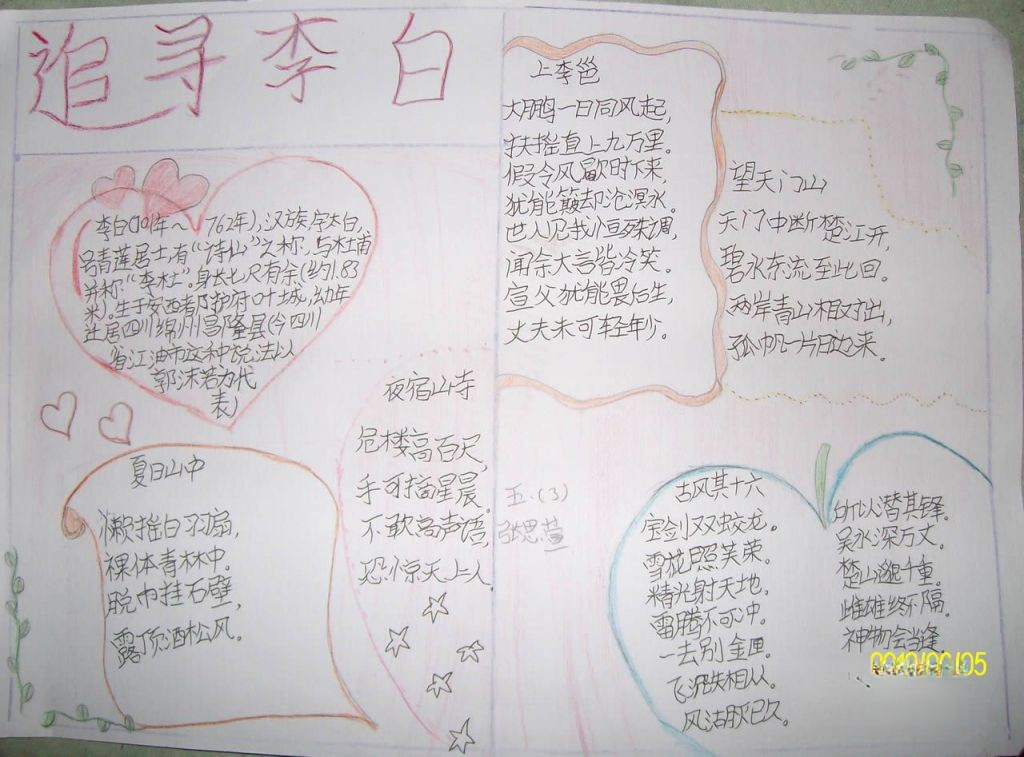 追寻李白
李白(701年～762年),汉族,字太白,
号青莲居士,有“诗仙”之称,与杜甫
并称“李杜”。身长七尺有余(约1.83
米)。生于安西都护府叶城,幼年
迁居四川绵州昌隆县(今四川
省江油市这种说法以
郭沫若为代
表)
夏日山中
懒摇白羽扇,
裸体青林中。
脱巾挂石壁,
露顶洒松风。
夜宿山寺
危楼高百尺,
手可摘星辰。
不敢高声语,
恐惊天上人
五.(3)
张思萱
上李邕
大鹏一日同风起,
扶摇直上九万里。
假令风歇时下来
犹能簸却沧溟水。
世人见我恒殊调,
闻余大言皆冷笑。
宣父犹能畏后生,
丈夫未可轻年少。
望天门山
天门中断楚江开,
碧水东流至此回。
两岸青山相对出,
孤帆一片日边来。
古风其十六
宝剑双蛟龙。
雪花照芙蓉。
精光射天地,
雷腾不可冲。
一去别金匣。
飞沉失相从。
风沽殁已久。
所以潜其锋。
吴水深万丈。
楚山邈千重。
雌雄终不隔。
神物会当逢。